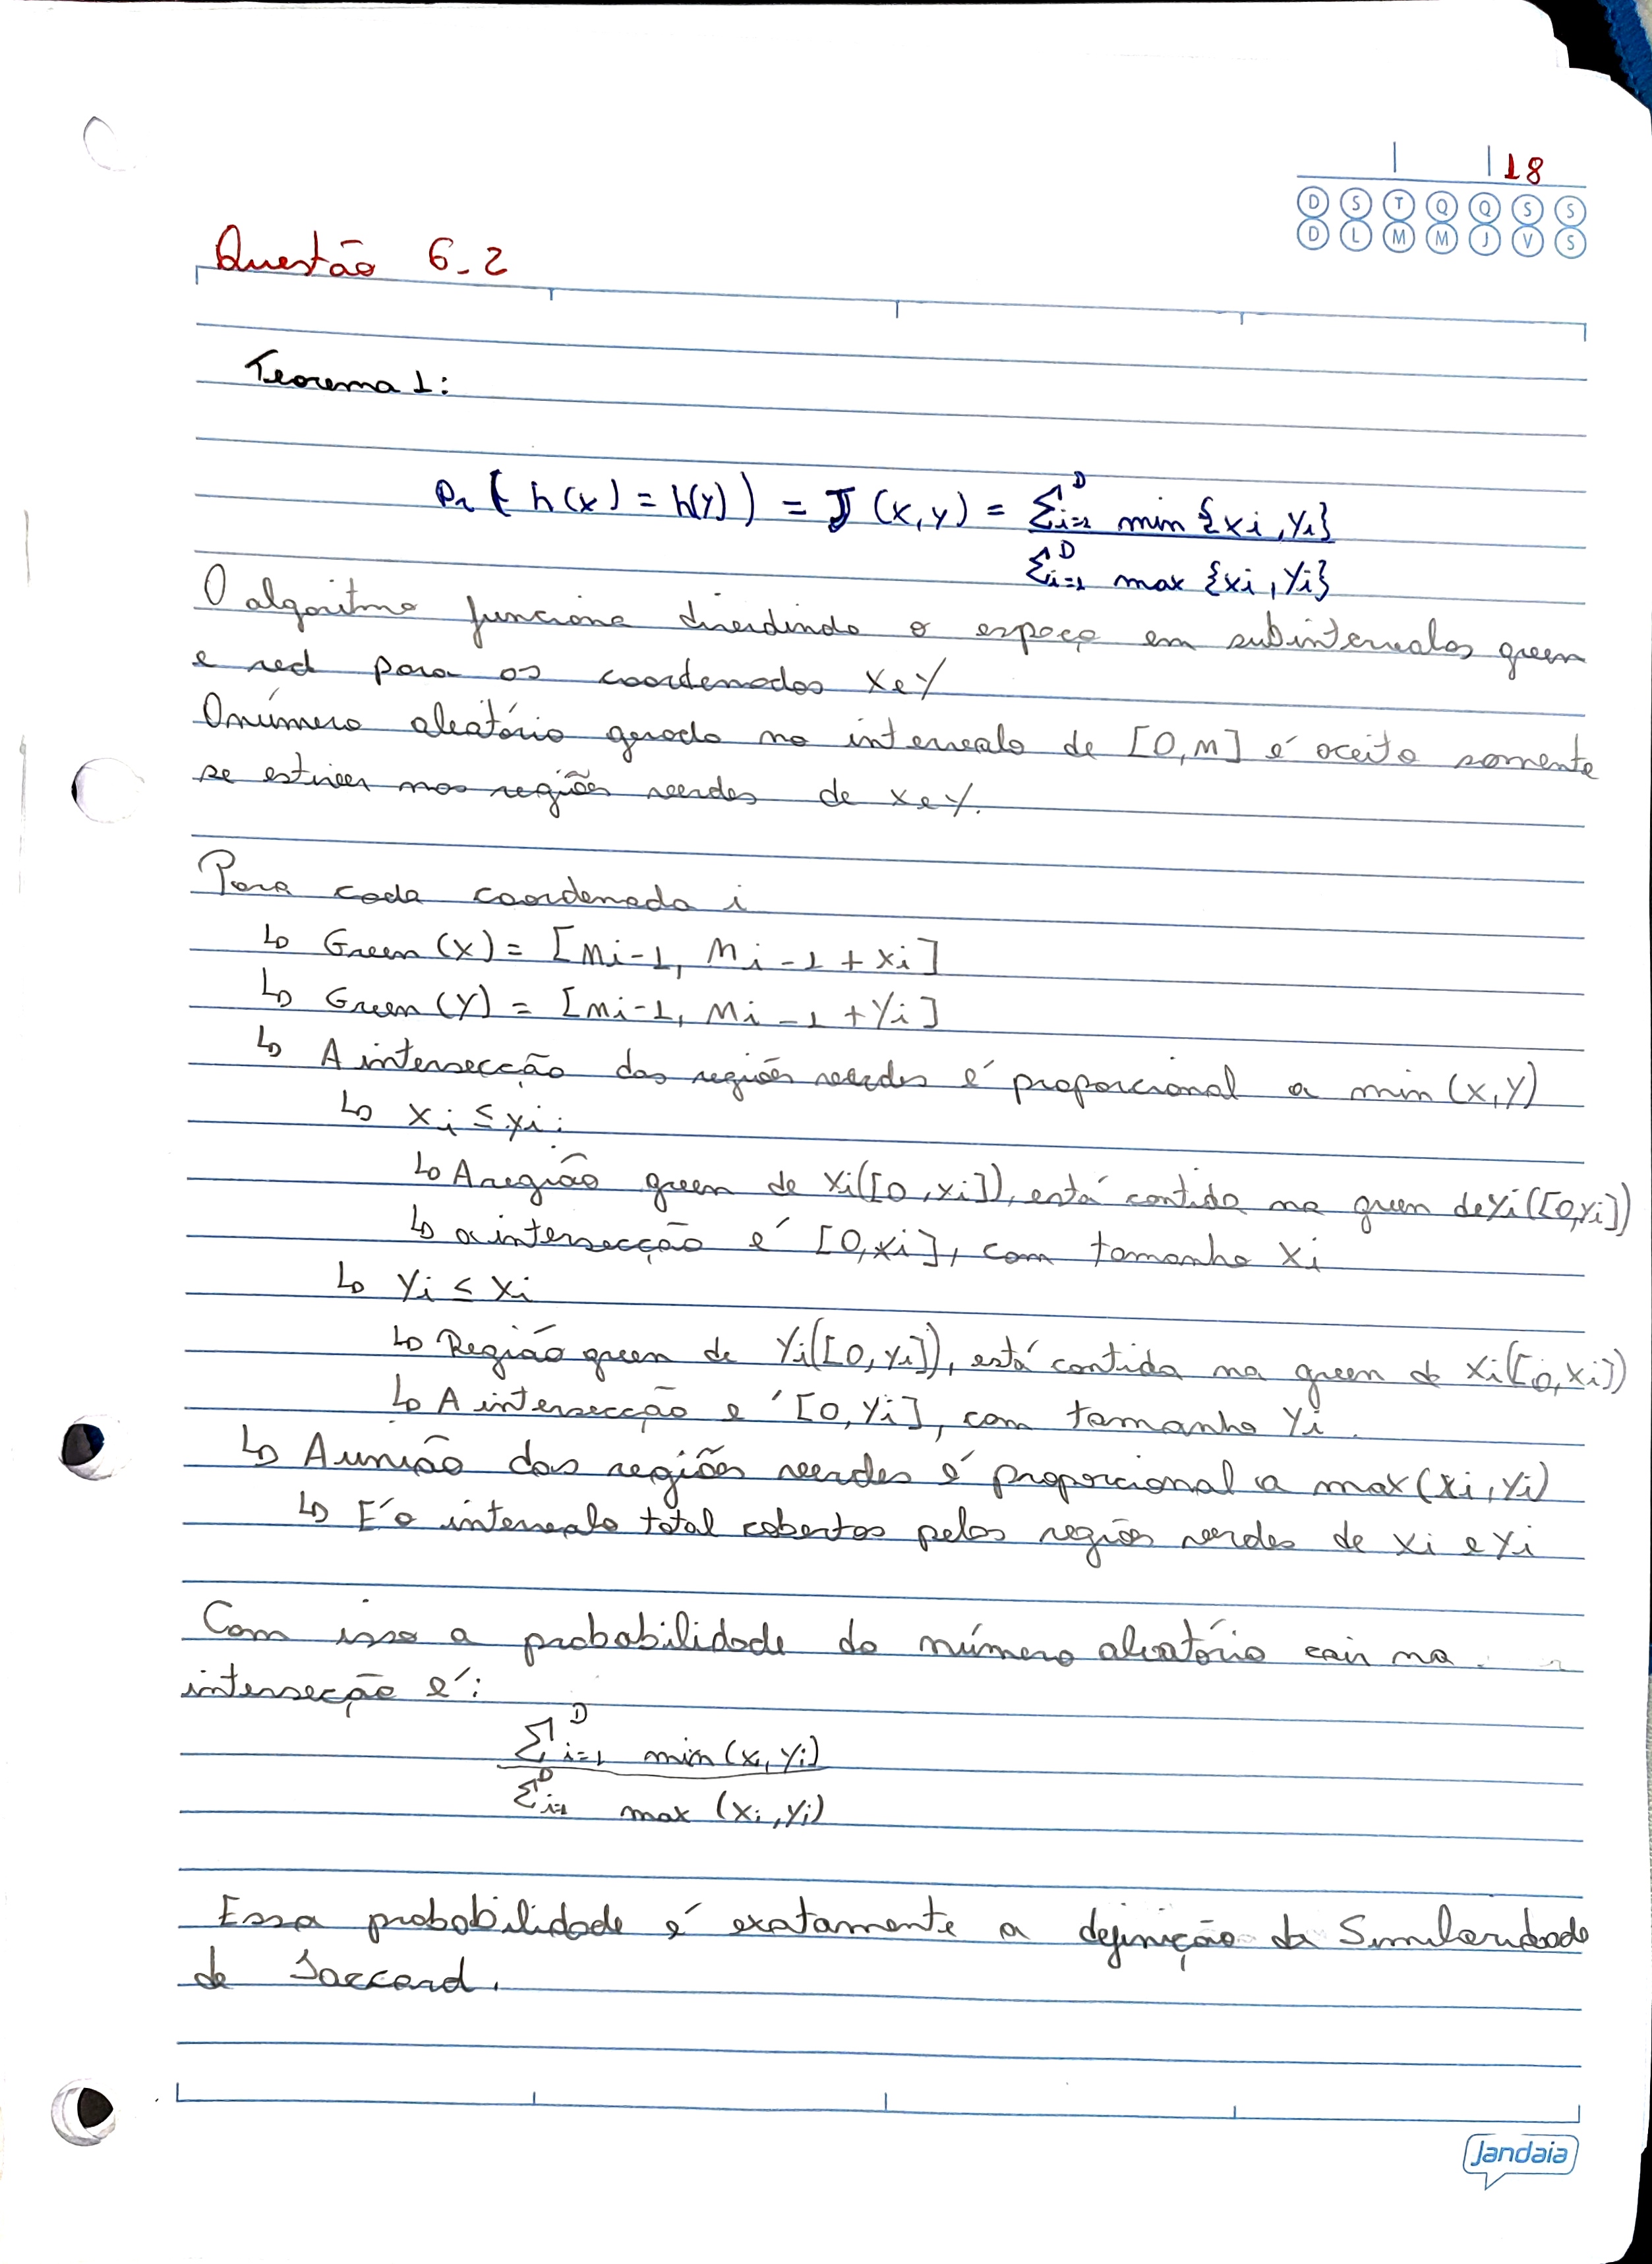 18
D S T Q Q S S
D L M M J V S
Questão 6.2
Teorema 1:
Pr ( h(x) = h(y) ) = J (x,y) = Σ_{i=1}^D min {xi, yi}
Σ_{i=1}^D max {xi, yi}
O algoritmo funciona dividindo o espaço em subintervalos green
e red para os coordenadas x e y
O número aleatório gerado no intervalo de [0, M] é aceito somente
se estiver nas regiões verdes de x e y.
Para cada coordenada i
↳ Green (x) = [Mi-1, Mi-1 + xi]
↳ Green (y) = [Mi-1, Mi-1 + yi]
↳ A intersecção das regiões verdes é proporcional a min (x,y)
↳ xi ≤ yi:
↳ A região green de xi([0, xi]), está contida na green de yi([0, yi])
↳ a intersecção é [0, xi], com tamanho xi
↳ yi ≤ xi
↳ Região green de yi([0, yi]), está contida na green de xi([0, xi])
↳ A intersecção é [0, yi], com tamanho yi.
↳ A união das regiões verdes é proporcional a max(xi, yi)
↳ É o intervalo total cobertos pelas regiões verdes de xi e yi
Com isso a probabilidade do número aleatório cair na
interseção é:
Σ_{i=1}^D min (xi, yi)
Σ_{i=1}^D max (xi, yi)
Essa probabilidade é exatamente a definição da Similaridade
de Jaccard.
Jandaia